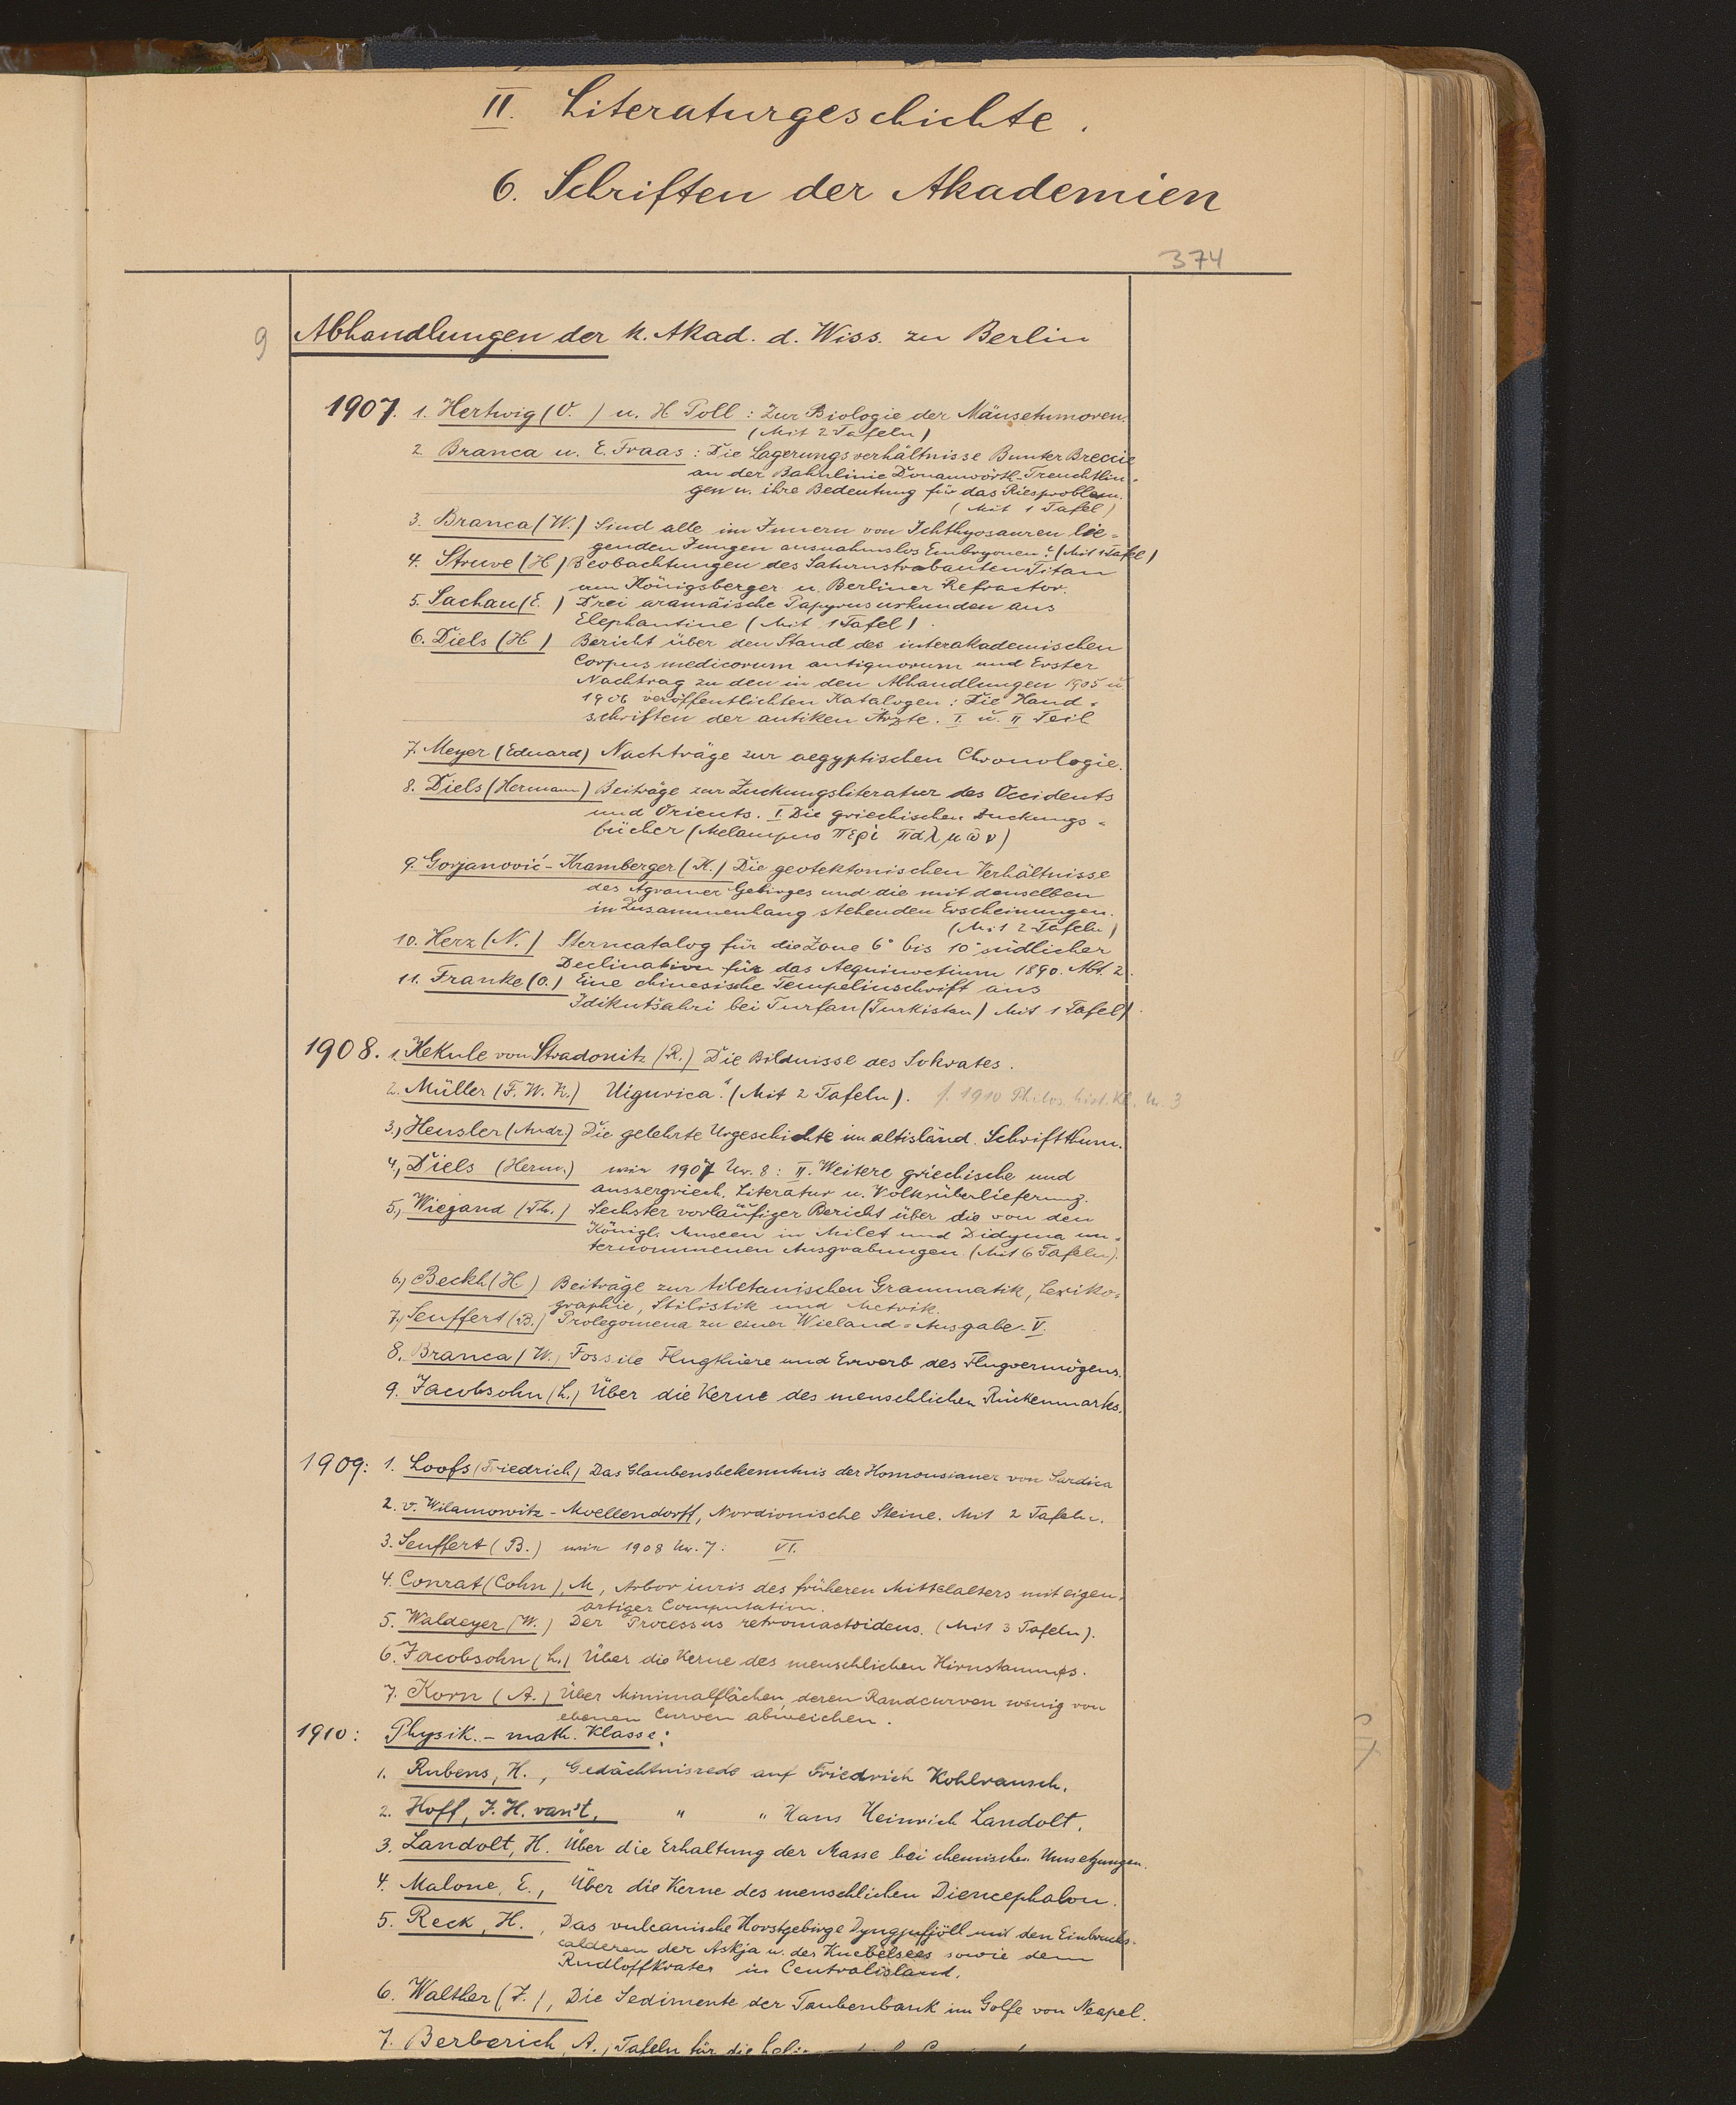 II. Literaturgeschichte.
6. Schriften der Akademien
374
9 Abhandlungen der K. Akad. d. Wiss. zu Berlin
1907. 1. Hertwig (O. ) u. H Poll : Zur Biologie der Mäusetumoren.
(Mit 2 Tafeln)
2. Branca u. E. Fraas : Die Lagerungsverhältnisse Bunter Breccie
an der Bahnlinie Donauwörth-Treuchtlin-
gen u. ihre Bedeutung für das Riesproblem.
(Mit 1 Tafel)
3. Branca (W.) Sind alle im Innern von Ichthyosauren lie-
genden Jungen ausnahmslos Embryonen? (Mit 1 Tafel)
4. Struve (H) Beobachtungen des Saturnstrabanten Titan
am Königsberger u. Berliner Refractor.
5. Sachau (E. ) Drei aramäische Papyrusurkunden aus
Elephantine (Mit 1 Tafel).
6. Diels (H ) Bericht über den Stand des interakademischen
Corpus medicorum antiquorum und Erster
Nachtrag zu den in den Abhandlungen 1905 u
1906 veröffentlichten Katalogen : Die Hand-
schriften der antiken Ärzte. I. u. II Teil
7. Meyer (Eduard) Nachträge zur aegyptischen Chronologie.
8. Diels (Hermann) Beiträge zur Zuckungsliteratur des Occidents
und Orients. I Die griechischen Zuckungs-
bücher (Melampus Περὶ παλμῶν)
9. Gorjanović-Kramberger (K.) Die geotektonischen Verhältnisse
des Agramer Gebirges und die mit denselben
in Zusammenhang stehenden Erscheinungen.
(Mit 2 Tafeln)
10. Herz (N.) Sterncatalog für die Zone 6° bis 10° südlicher
Declination für das Aequinoctium 1890. Abt. 2.
11. Franke (O.) Eine chinesische Tempelinschrift aus
Idikutšahri bei Turfan (Turkistan) Mit 1 Tafel).
1908. 1. Kekule von Stradonitz (R.) Die Bildnisse des Sokrates.
2. Müller (F. W. K.) Uigurica. (Mit 2 Tafeln). f. 1910 Philos. hist. Kl. Nr. 3
3., Heusler (Andr.) Die gelehrte Urgeschichte im altisländ. Schrifttum.
4., Diels (Herm.) wie 1907 Nr. 8 : II. Weitere griechische und
aussergriech. Literatur u. Volksüberlieferung.
5., Wiegand (Th.) Sechster vorläufiger Bericht über die von den
Königl. Museen in Milet und Didyma un-
ternommenen Ausgrabungen (Mit 6 Tafeln).
6., Beckh (H.) Beiträge zur tibetanischen Grammatik, Lexiko-
graphie, Stilistik und Metrik.
7., Seuffert (B.) Prolegomena zu einer Wieland-Ausgabe. V.
8. Branca (W.) Fossile Flugthiere und Erwerb des Flugvermögens.
9. Jacobsohn (L.) Über die Kerne des menschlichen Rückenmarks.
1909: 1. Loofs (Friedrich) Das Glaubensbekenntnis der Homousianer von Sardica
2. v. Wilamowitz-Moellendorff, Nordionische Steine. Mit 2 Tafeln.
3. Seuffert (B.) wie 1908 Nr. 7 : VI.
4. Conrat (Cohn), M, Arbor iuris des früheren Mittelalters mit eigen-
artiger Computation.
5. Waldeyer (W.) Der Processus retromastoideus. (Mit 3 Tafeln).
6. Jacobsohn (L.) Über die Kerne des menschlichen Hirnstammes.
7. Korn (A.) Über Minimalflächen, deren Randcurven wenig von
ebenen Curven abweichen.
1910: Physik.-math. Klasse:
1. Rubens, H., Gedächtnisrede auf Friedrich Kohlrausch.
2. Hoff, J. H. van't, " " Hans Heinrich Landolt.
3. Landolt, H. Über die Erhaltung der Masse bei chemischen Umsetzungen.
4. Malone, E., Über die Kerne des menschlichen Diencephalon.
5. Reck, H., Das vulcanische Horstgebirge Dyngjufjöll mit den Einbruchs-
calderen der Askja u. des Knebelsees sowie dem
Rudloffkrater in Centralisland.
6. Walther (J.), Die Sedimente der Taubenbank im Golfe von Neapel.
7. Berberich, A., Tafeln für die